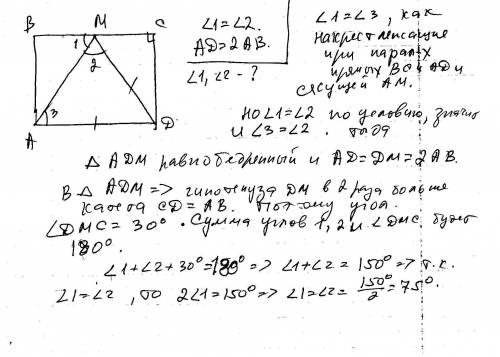 B M C
1 2
3
A D
∠1=∠2.
AD=2AB.
∠1, ∠2 - ?
∠1=∠3, как
накрест лежащие
при парал-х
прямых BC и AD и
секущей AM.
но ∠1=∠2 по условию, значит
и ∠3=∠2. тогда
△ ADM равнобедренный и AD=DM=2AB.
В △ ADM => гипотенуза DM в 2 раза больше
катета CD=AB. Поэтому угол
∠DMC=30°. Сумма углов 1, 2 и ∠DMC будет
180°.
∠1+∠2+30°=180° => ∠1+∠2=150° => т.к.
∠1=∠2, то 2∠1=150° => ∠1=∠2=150°/2=75°.